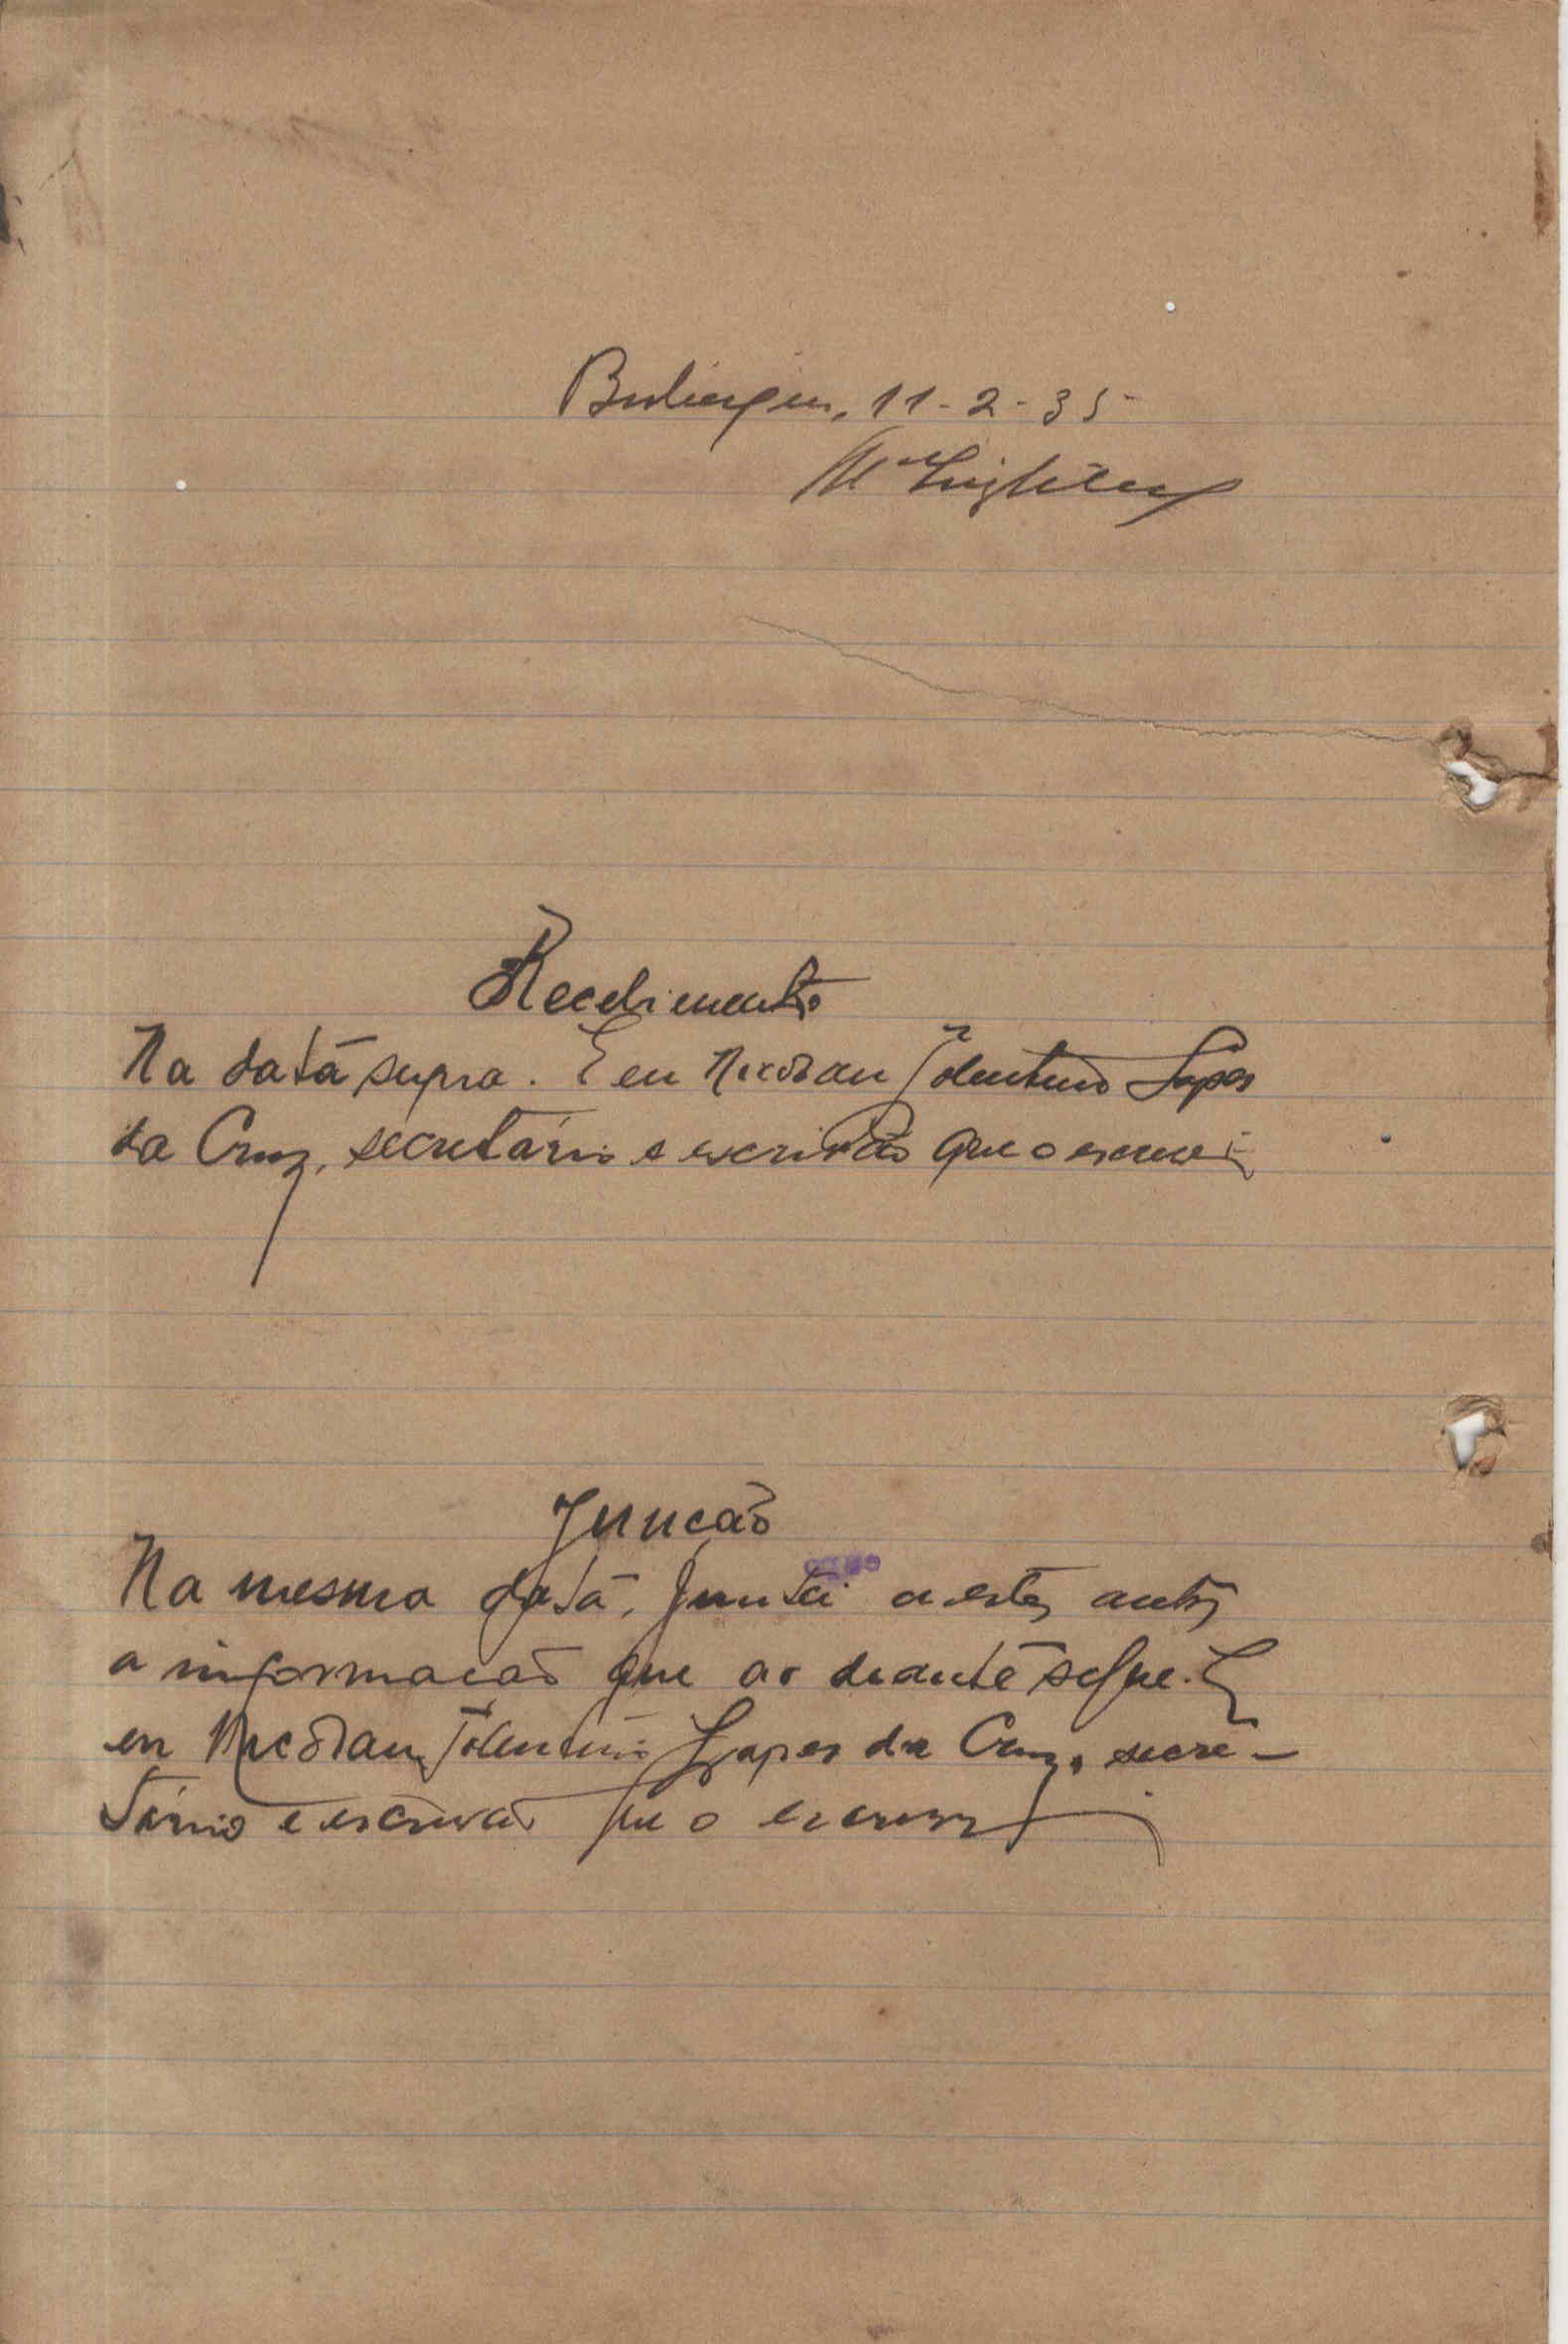 11-2-35
Recebimento
Na data supra. E eu Tolentino Lopes
da Cruz, secretário e escrivão que o escrevi
Juncão
Na mesma data, juntei a estes autos
a informacão que ao deante segue. E
eu Tolentino Lopes da Cruz, secre-
tário e escrivão que o escrevi